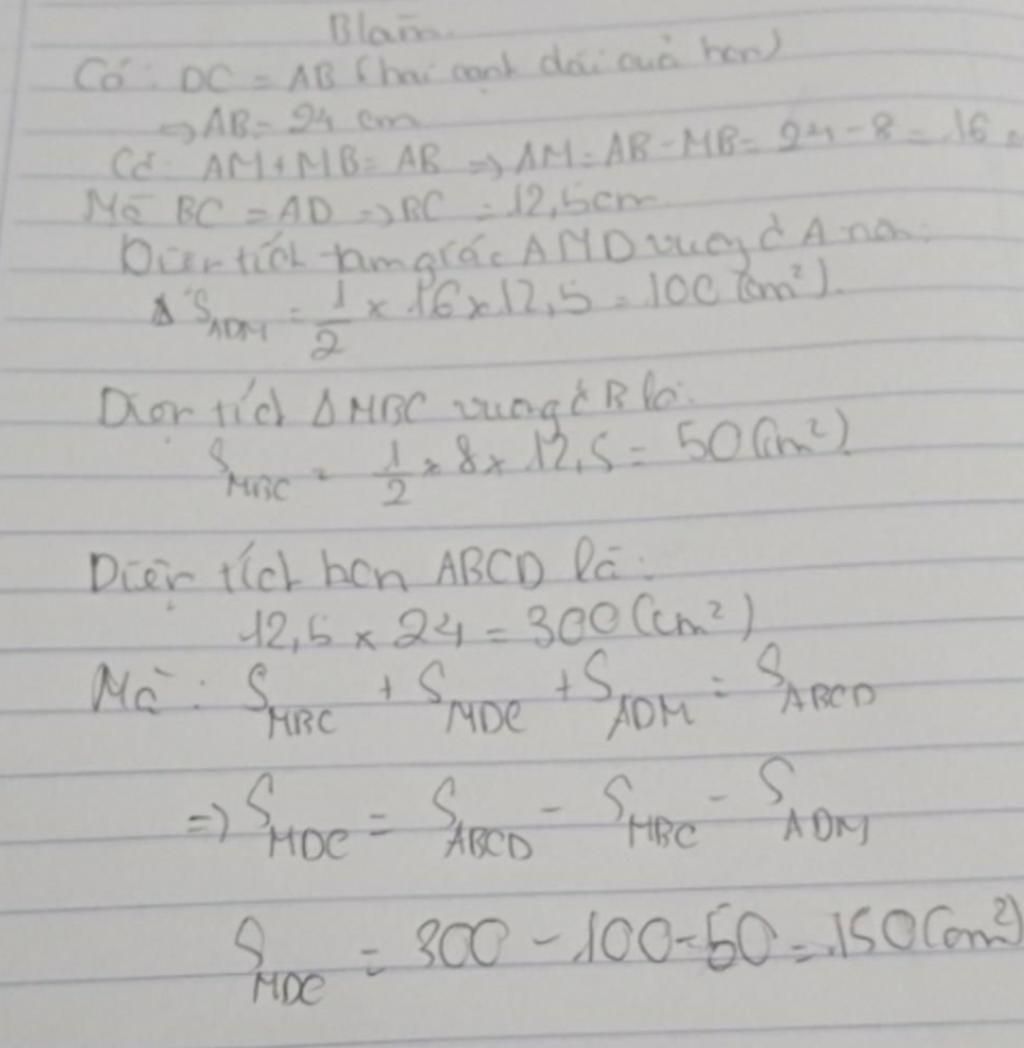 Blàm
Có: DC = AB (hai cạnh dài của hcn)
=> AB = 24 cm
Có: AM + MB = AB => AM = AB - MB = 24 - 8 = 16
Mà BC = AD => BC = 12,5cm
Diện tích tam giác AMD vuông ở A
S ADM = 1/2 x 16 x 12,5 = 100 (cm²).
Diện tích Δ MBC vuông ở B là:
S MBC = 1/2 x 8 x 12,5 = 50 (cm²)
Diện tích hcn ABCD là:
12,5 x 24 = 300 (cm²)
Mà: S MBC + S MDC + S ADM = S ABCD
=> S MDC = S ABCD - S MBC - S ADM
S MDC = 300 - 100 - 50 = 150 (cm²)